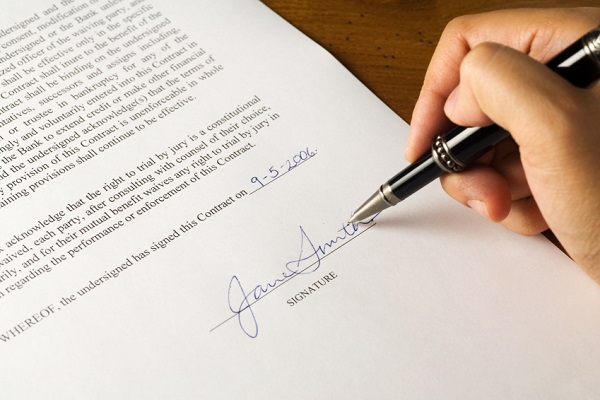 undersigned and this
consent, modification or
undersigned or the Bank unless
ized officer of the waiving party, and
shall be effective only in the specific
Contract shall inure to the benefit of the
ntract shall be binding on the undersigned
ntatives, successors and assigns including,
or or trustee in bankruptcy for any of the
ingly and voluntarily entered into this Contract in
the Bank to extend credit or make other financial
nd the undersigned acknowledge(s) that the terms of
y provision of this Contract is unenforceable in whole
aining provisions shall continue to be effective.
acknowledge that the right to trial by jury is a constitutional
waived, each party, after consulting with counsel of their choice,
arily, and for their mutual benefit waives any right to trial by jury in
n regarding the performance or enforcement of this Contract.
WHEREOF, the undersigned has signed this Contract on 9-5-2006.
Jane Smith
SIGNATURE